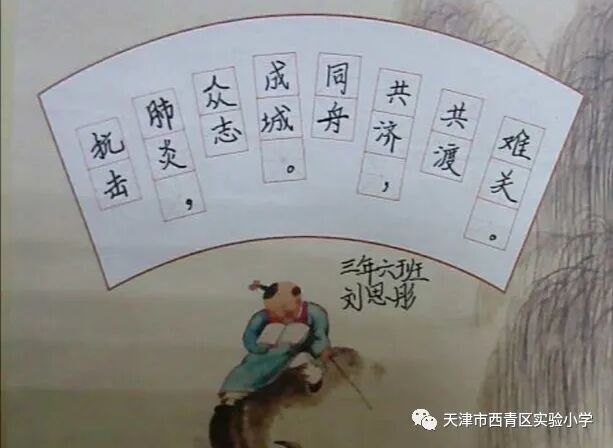 抗击
肺炎，
众志
成城。
同舟
共济，
共渡
难关。
三年六班
刘思彤
天津市西青区实验小学